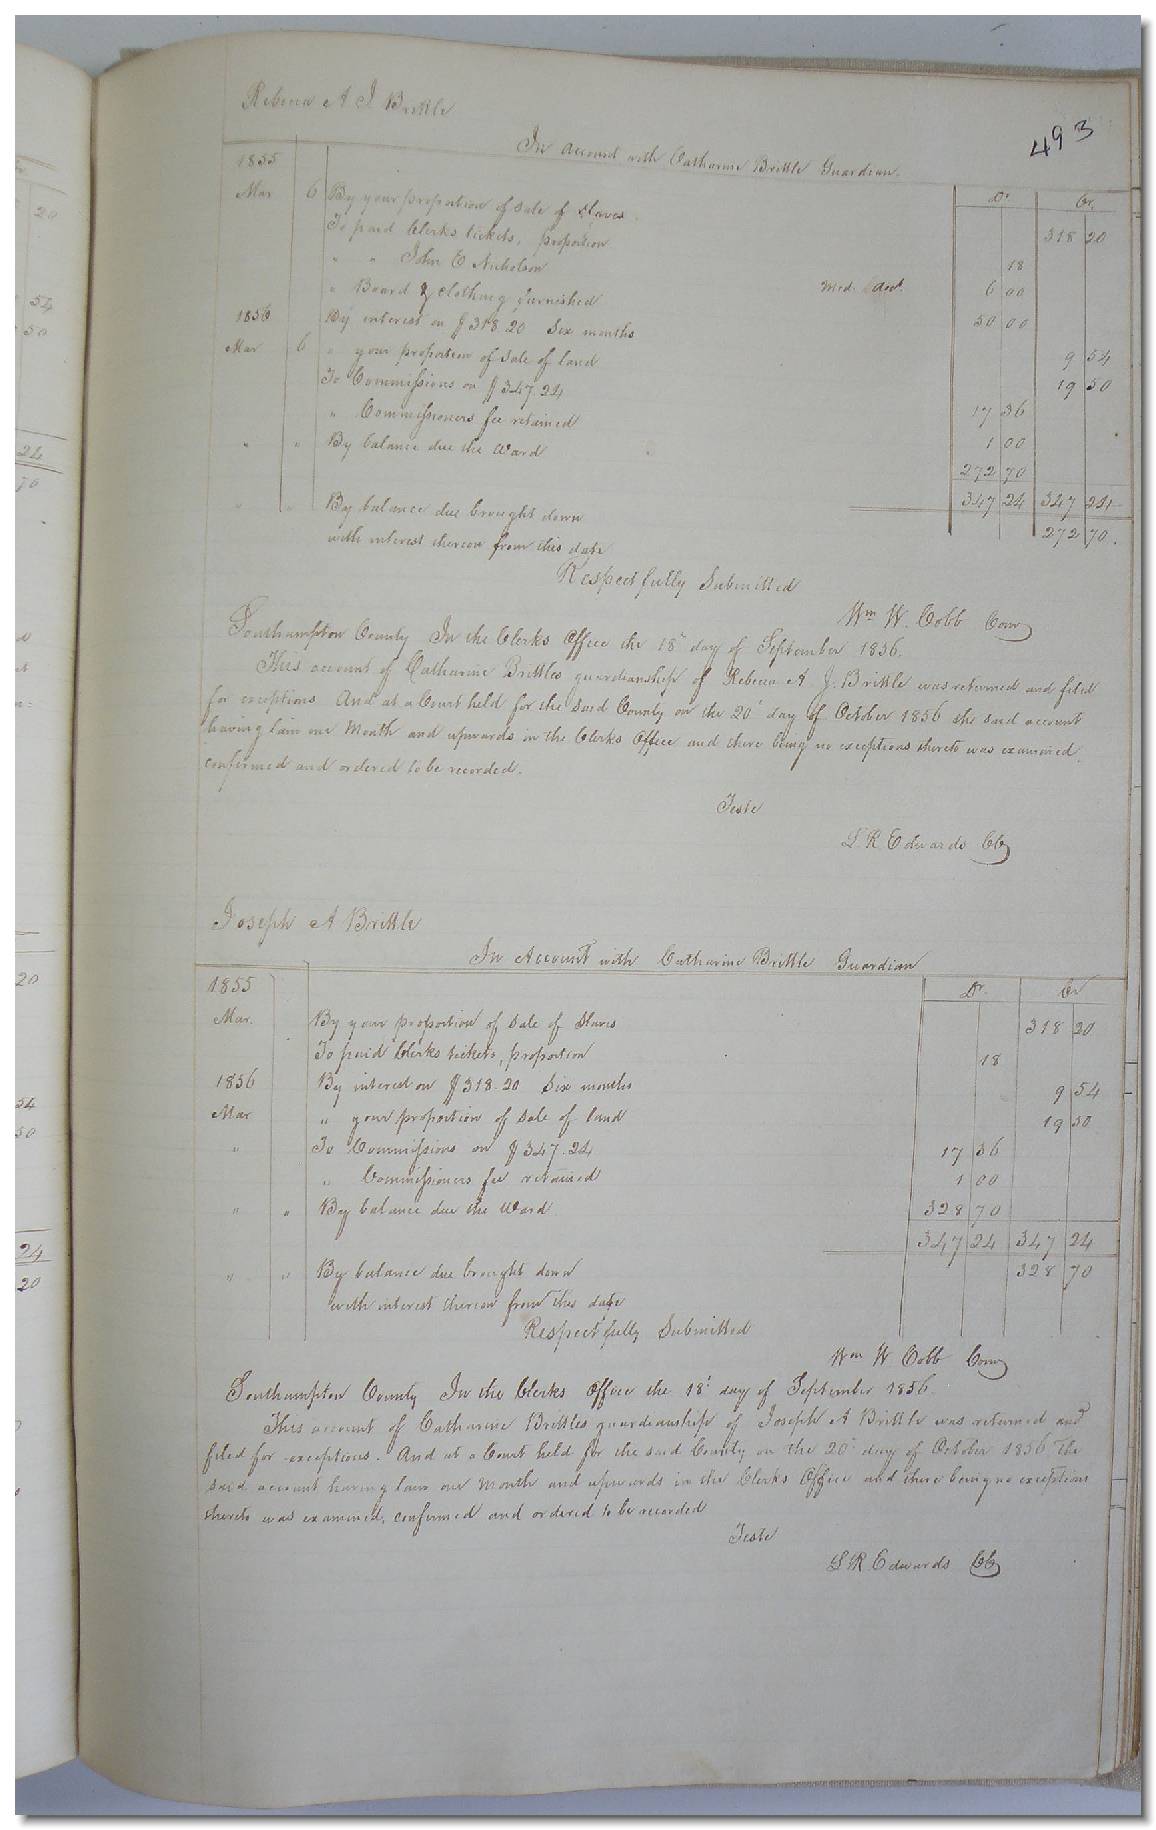 493
Rebecca A J Brittle
In Account with Catharine Brittle Guardian.
1855 Dr. Cr.
Mar 6 By your proportion of Sale of Slaves 318 20
To paid Clerks tickets, proportion 18
" " John E Nicholson Med. Acct. 6 00
" Board & Clothing furnished 50 00
1856 By interest on $318.20 Six months 9 54
Mar 6 " your proportion of Sale of land 19 50
To Commissions on $347.24 17 36
" Commissioners fee retained 1 00
" " By balance due the Ward 272 70
347 24 347 24
" " By balance due brought down 272 70.
with interest thereon from this date
Respectfully Submitted
Wm W. Cobb Com
Southampton County In the Clerks Office the 18th day of September 1856.
This account of Catharine Brittles guardianship of Rebecca A. J. Brittle was returned and filed
for exceptions And at a Court held for the said County on the 20th day of October 1856 the said account
having lain one Month and upwards in the Clerks Office and there being no exceptions thereto was examined,
confirmed and ordered to be recorded.
Teste
L. R. Edwards CC
Joseph A Brittle
In Account with Catharine Brittle Guardian
1855 Dr. Cr
Mar. By your proportion of Sale of Slaves 318 20
To paid Clerks tickets, proportion 18
1856 By interest on $318.20 Six months 9 54
Mar " your proportion of Sale of land 19 50
" To Commissions on $347.24 17 36
" Commissioners fee retained 1 00
" " By balance due the Ward 328 70
347 24 347 24
" " By balance due brought down 328 70
with interest thereon from this date
Respectfully Submitted
Wm W Cobb Com
Southampton County In the Clerks Office the 18th day of September 1856.
This account of Catharine Brittles guardianship of Joseph A Brittle was returned and
filed for exceptions. And at a Court held for the said County on the 20th day of October 1856 The
said account having lain one Month and upwards in the Clerks Office and there being no exceptions
thereto was examined, confirmed and ordered to be recorded
Teste
L R Edwards CC